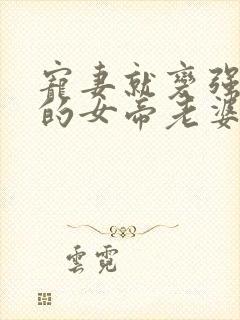 寵妻就變强
的女帝老婆
雲霓